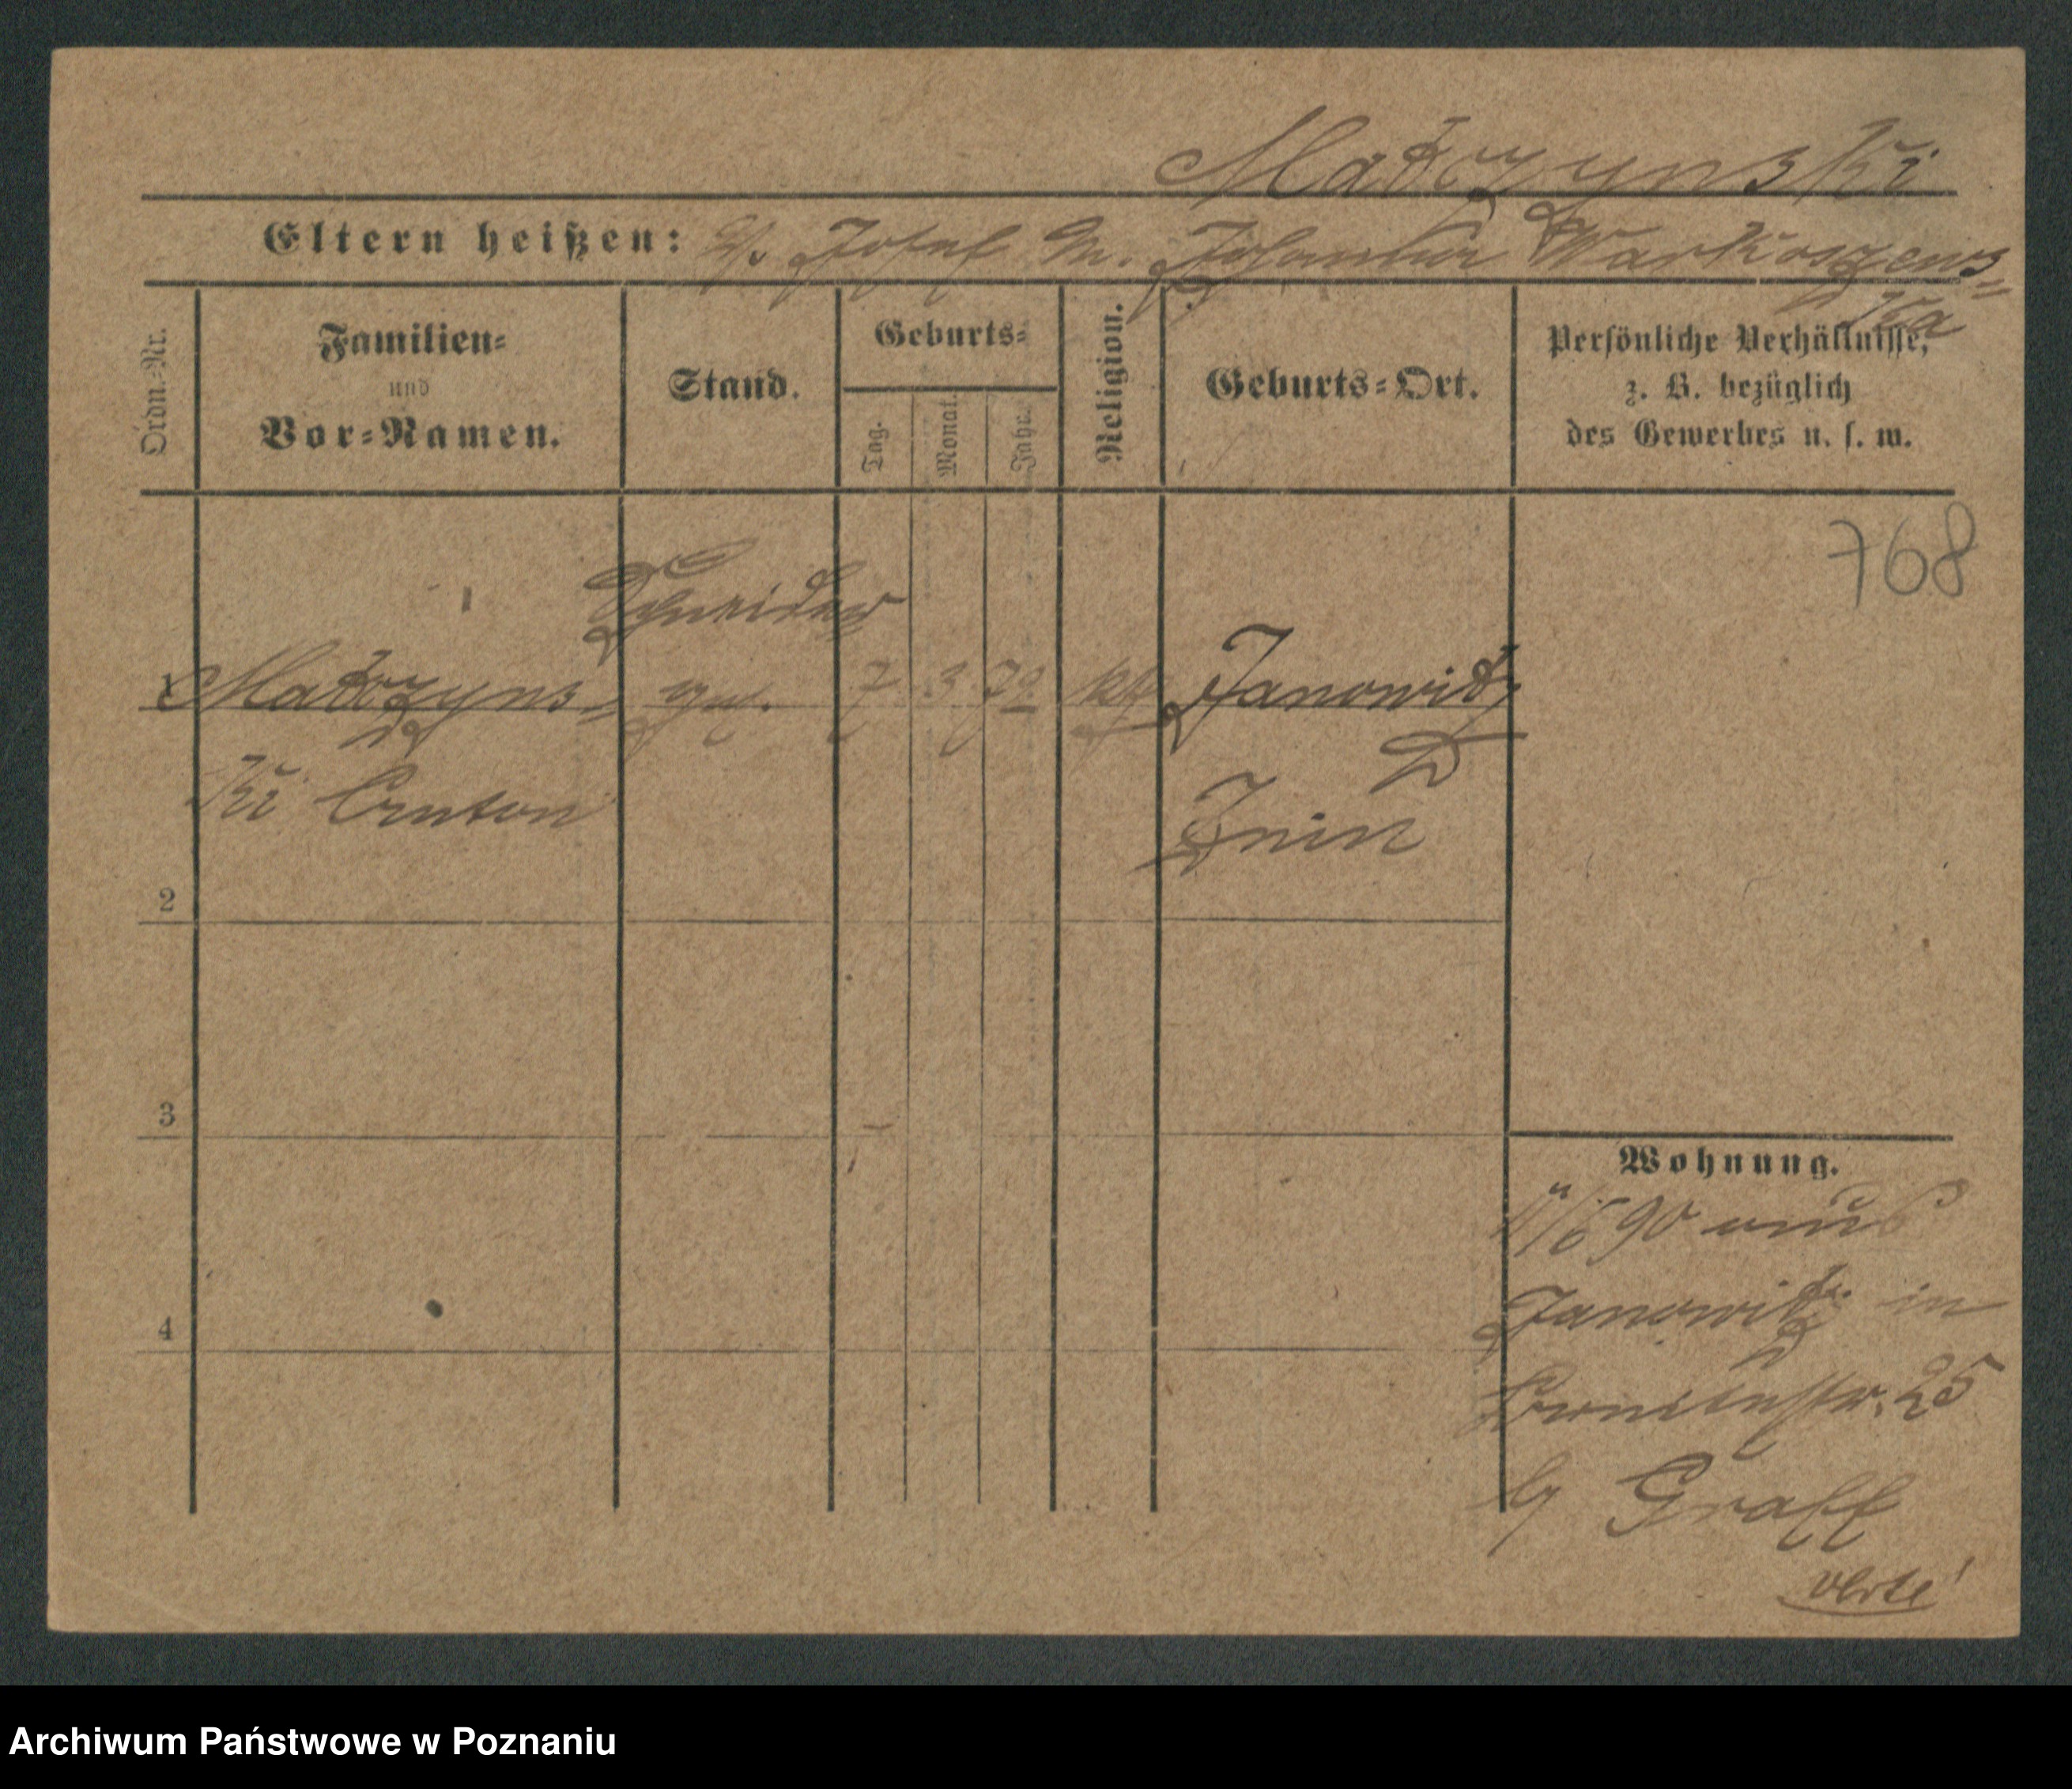 Matczynski
Eltern heißen: V. Josef M. Johanna Warkoszews=
ka
Ordn.-Nr.
Familien=
und
Vor=Namen.
Stand.
Geburts=
Tag.
Monat.
Jahr.
Religion.
Geburts=Ort.
Persönliche Verhältnisse,
z. B. bezüglich
des Gewerbes u. s. w.
768
Schneider
1 Matczyns= 7 3 72 kth Janowitz
ki Anton
Znin
2
3
4
Wohnung.
11/6 90 aus
Janowitz in
25
b/ Graff
verte!
Archiwum Państwowe w Poznaniu